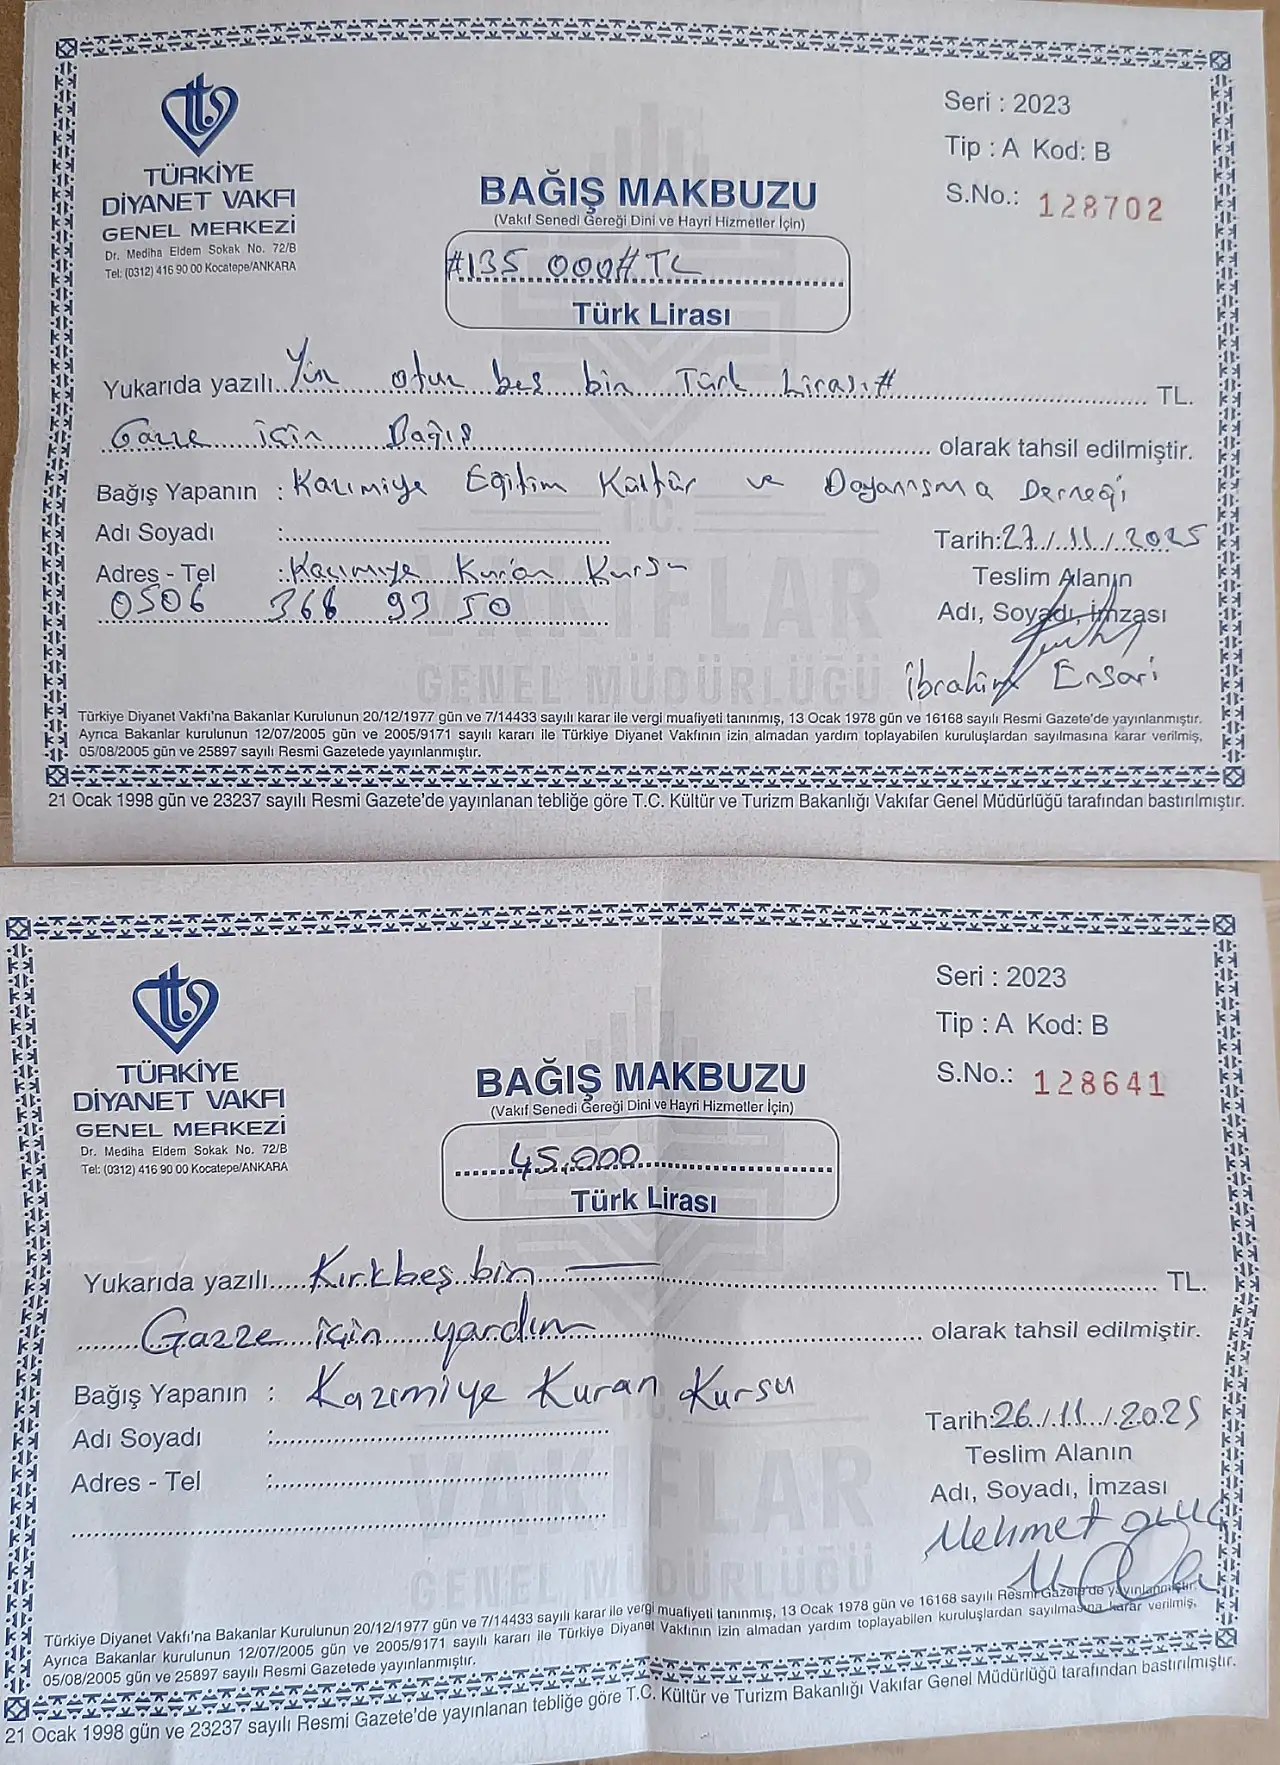 TÜRKİYE
DİYANET VAKFI
GENEL MERKEZİ
Dr. Mediha Eldem Sokak No. 72/B
Tel: (0312) 416 90 00 Kocatepe/ANKARA
Seri : 2023
Tip : A Kod: B
S.No.: 128702
BAĞIŞ MAKBUZU
(Vakıf Senedi Gereği Dini ve Hayri Hizmetler İçin)
#135 000# TL
Türk Lirası
Yukarıda yazılı Yüz otuz beş bin Türk Lirası# TL.
Gazze için Bağış olarak tahsil edilmiştir.
Bağış Yapanın : Kazımiye Eğitim Kültür ve Dayanışma Derneği
Adı Soyadı :
Tarih: 27/11/2025
Adres - Tel : Kazımiye Kur'an Kursu
0506 366 93 50
Teslim Alanın
Adı, Soyadı, İmzası
İbrahim Ensari
T.C.
VAKIFLAR
GENEL MÜDÜRLÜĞÜ
Türkiye Diyanet Vakfı'na Bakanlar Kurulunun 20/12/1977 gün ve 7/14433 sayılı karar ile vergi muafiyeti tanınmış, 13 Ocak 1978 gün ve 16168 sayılı Resmi Gazete'de yayınlanmıştır.
Ayrıca Bakanlar kurulunun 12/07/2005 gün ve 2005/9171 sayılı kararı ile Türkiye Diyanet Vakfının izin almadan yardım toplayabilen kuruluşlardan sayılmasına karar verilmiş,
05/08/2005 gün ve 25897 sayılı Resmi Gazetede yayınlanmıştır.
21 Ocak 1998 gün ve 23237 sayılı Resmi Gazete'de yayınlanan tebliğe göre T.C. Kültür ve Turizm Bakanlığı Vakıfar Genel Müdürlüğü tarafından bastırılmıştır.
TÜRKİYE
DİYANET VAKFI
GENEL MERKEZİ
Dr. Mediha Eldem Sokak No. 72/B
Tel: (0312) 416 90 00 Kocatepe/ANKARA
Seri : 2023
Tip : A Kod: B
S.No.: 128641
BAĞIŞ MAKBUZU
(Vakıf Senedi Gereği Dini ve Hayri Hizmetler İçin)
45.000
Türk Lirası
Yukarıda yazılı Kırkbeş bin TL.
Gazze için yardım olarak tahsil edilmiştir.
Bağış Yapanın : Kazımiye Kuran Kursu
Adı Soyadı :
Tarih: 26/11/2025
Adres - Tel :
Teslim Alanın
Adı, Soyadı, İmzası
Mehmet
T.C.
VAKIFLAR
GENEL MÜDÜRLÜĞÜ
Türkiye Diyanet Vakfı'na Bakanlar Kurulunun 20/12/1977 gün ve 7/14433 sayılı karar ile vergi muafiyeti tanınmış, 13 Ocak 1978 gün ve 16168 sayılı Resmi Gazete'de yayınlanmıştır.
Ayrıca Bakanlar kurulunun 12/07/2005 gün ve 2005/9171 sayılı kararı ile Türkiye Diyanet Vakfının izin almadan yardım toplayabilen kuruluşlardan sayılmasına karar verilmiş,
05/08/2005 gün ve 25897 sayılı Resmi Gazetede yayınlanmıştır.
21 Ocak 1998 gün ve 23237 sayılı Resmi Gazete'de yayınlanan tebliğe göre T.C. Kültür ve Turizm Bakanlığı Vakıfar Genel Müdürlüğü tarafından bastırılmıştır.